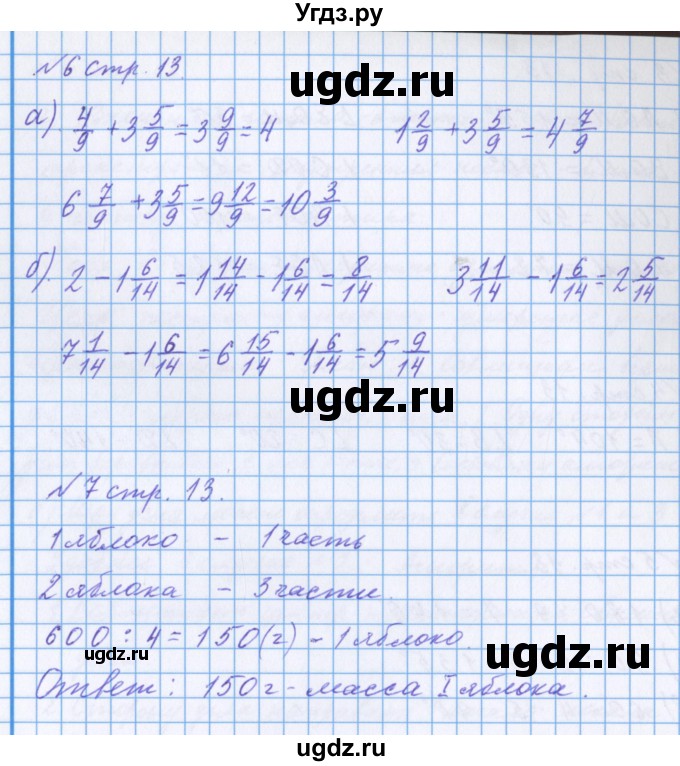 Угдз.ру
№6 стр. 13.
ugdz.ru
а) 4/9 + 3 5/9 = 3 9/9 = 4    1 2/9 + 3 5/9 = 4 7/9
6 7/9 + 3 5/9 = 9 12/9 = 10 3/9
б) 2 - 1 6/14 = 1 14/14 - 1 6/14 = 8/14    3 11/14 - 1 6/14 = 2 5/14
7 1/14 - 1 6/14 = 6 15/14 - 1 6/14 = 5 9/14
ugdz.ru
№7 стр. 13.
1 яблоко - 1 часть
2 яблока - 3 части.
600 : 4 = 150 (г) - 1 яблоко.
ugdz.ru
ugdz.ru
Ответ: 150 г - масса I яблока.
ugdz.ru